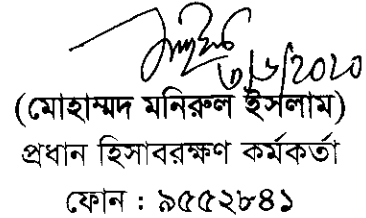 ৩/৬/2020
(মোহাম্মদ মনিরুল ইসলাম)
প্রধান হিসাবরক্ষণ কর্মকর্তা
ফোন : ৯৫৫২৮৪১